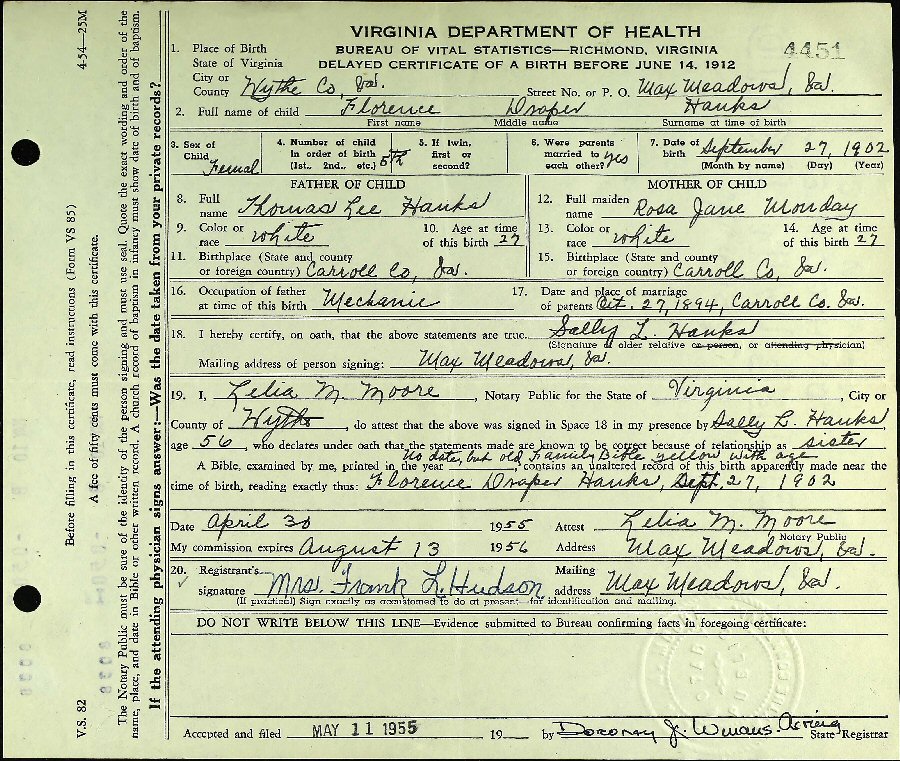 VIRGINIA DEPARTMENT OF HEALTH
BUREAU OF VITAL STATISTICS—RICHMOND, VIRGINIA
DELAYED CERTIFICATE OF A BIRTH BEFORE JUNE 14, 1912
4451
1. Place of Birth
State of Virginia
City or
County Wythe Co, Va. Street No. or P. O. Max Meadows, Va.
2. Full name of child Florence Draper Hanks
First name Middle name Surname at time of birth
3. Sex of Child Femal
4. Number of child in order of birth (1st, 2nd., etc.) 5th
5. If twin, first or second?
6. Were parents married to each other? yes
7. Date of birth September 27, 1902
(Month by name) (Day) (Year)
FATHER OF CHILD
8. Full name Thomas Lee Hanks
9. Color or race white 10. Age at time of this birth 27
11. Birthplace (State and county or foreign country) Carroll Co, Va.
MOTHER OF CHILD
12. Full maiden name Rosa Jane Monday
13. Color or race white 14. Age at time of this birth 27
15. Birthplace (State and county or foreign country) Carroll Co, Va.
16. Occupation of father at time of this birth Mechanic
17. Date and place of marriage of parents Oct. 27, 1894, Carroll Co. Va.
18. I hereby certify, on oath, that the above statements are true. Sally L. Hanks
(Signature of older relative or person, or attending physician)
Mailing address of person signing: Max Meadows, Va.
19. I, Lelia M. Moore, Notary Public for the State of Virginia, City or
County of Wythe, do attest that the above was signed in Space 18 in my presence by Sally L. Hanks,
age 56, who declares under oath that the statements made are known to be correct because of relationship as sister
No date, but old Family Bible yellow with age
A Bible, examined by me, printed in the year , contains an unaltered record of this birth apparently made near the
time of birth, reading exactly thus: Florence Draper Hanks, Sept. 27, 1902
Date April 30 1955 Attest Lelia M. Moore
Notary Public
My commission expires August 13 1956 Address Max Meadows, Va.
20. Registrant's signature Mrs. Frank L. Hudson Mailing address Max Meadows, Va.
(If practical) Sign exactly as accustomed to do at present—for identification and mailing.
DO NOT WRITE BELOW THIS LINE—Evidence submitted to Bureau confirming facts in foregoing certificate:
Accepted and filed MAY 11 1955 19 by Dorothy J. Winans. Acting
State Registrar
4-54—25M
Before filling in this certificate, read instructions (Form VS 85)
A fee of fifty cents must come with this certificate.
V.S. 82
The Notary Public must be sure of the identity of the person signing and must use seal. Quote the exact wording and order of the
name, place, and date in Bible or other written record. A church record of baptism in infancy must show date of birth and of baptism.
If the attending physician signs answer:—Was the date taken from your private records?